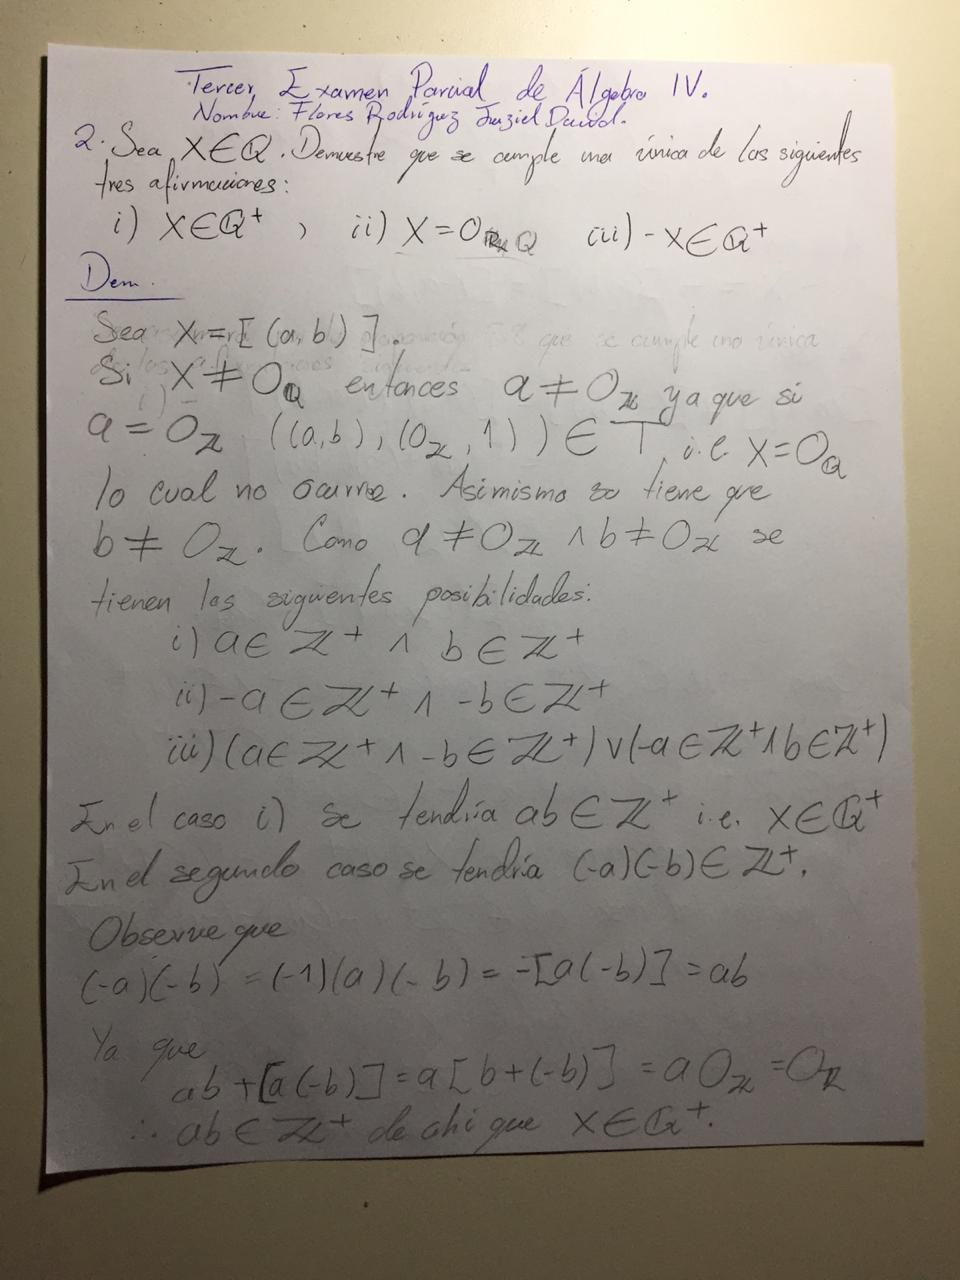 Tercer Examen Parcial de Álgebra IV.
Nombre: Flores Rodríguez David.
2. Sea X∈ℚ. Demuestre que se cumple una única de las siguientes
tres afirmaciones:
i) X∈ℚ⁺ , ii) X=0_ℚ iii) -X∈ℚ⁺
Dem.
Sea X=[(a,b)].
Si X≠0_ℚ entonces a≠0_ℤ ya que si
a=0_ℤ ((a,b),(0_ℤ,1))∈T i.e X=0_ℚ
lo cual no ocurre. Asimismo se tiene que
b≠0_ℤ. Como a≠0_ℤ ∧ b≠0_ℤ se
tienen las siguientes posibilidades:
i) a∈ℤ⁺ ∧ b∈ℤ⁺
ii) -a∈ℤ⁺ ∧ -b∈ℤ⁺
iii) (a∈ℤ⁺ ∧ -b∈ℤ⁺)∨(-a∈ℤ⁺∧b∈ℤ⁺)
En el caso i) se tendría ab∈ℤ⁺ i.e. X∈ℚ⁺
En el segundo caso se tendría (-a)(-b)∈ℤ⁺.
Observe que
(-a)(-b) = (-1)(a)(-b) = -[a(-b)] = ab
Ya que
ab+[a(-b)]=a[b+(-b)]=a0_ℤ=0_ℤ
∴ ab∈ℤ⁺ de ahí que X∈ℚ⁺.